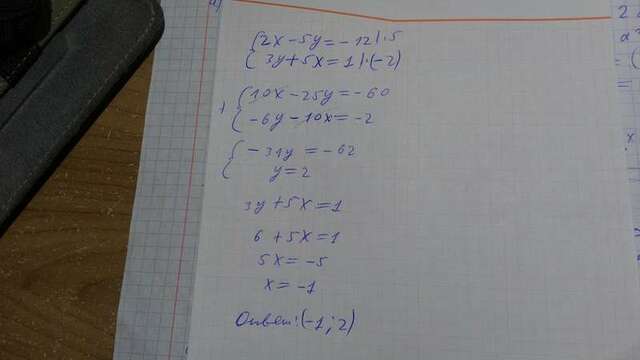 а)
{2x-5y=-12|·5
{3y+5x=1|·(-2)
+{10x-25y=-60
{-6y-10x=-2
{-31y=-62
{y=2
3y+5x=1
6+5x=1
5x=-5
x=-1
Ответ:(-1;2)